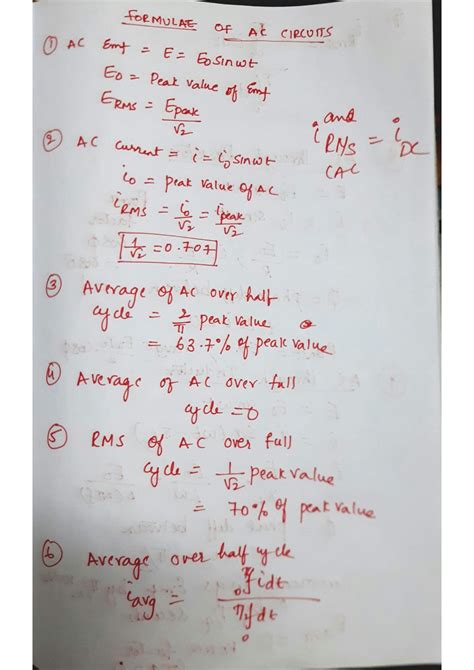 FORMULAE OF AC CIRCUITS
① AC Emf = E = E₀ sinwt
E₀ = Peak value of Emf
E_RMS = E_peak / √2
and
i_RMS = i_DC
(AC)
② AC current = i = i₀ sinwt
i₀ = peak value of AC
i_RMS = i₀/√2 = i_peak/√2
1/√2 = 0.707
③ Average of AC over half
cycle = 2/π peak value
= 63.7% of peak value
④ Average of AC over full
cycle = 0
⑤ RMS of AC over full
cycle = 1/√2 peak value
= 70% of peak value
⑥ Average over half cycle
i_avg = ₀∫ i dt / ∫ dt